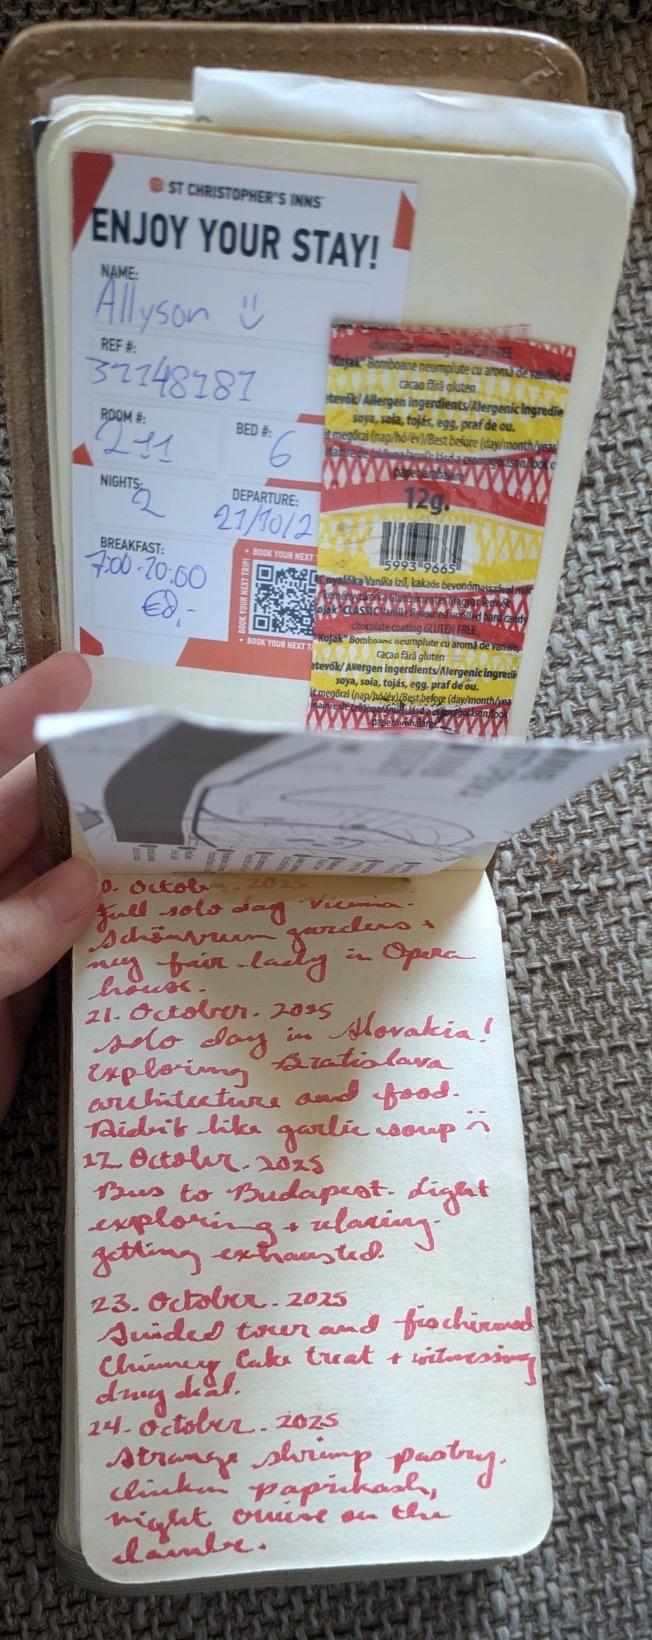 ST CHRISTOPHER'S INNS
ENJOY YOUR STAY!
NAME:
Allyson
REF #:
ROOM #:
211
BED #:
6
NIGHTS:
2
DEPARTURE:
21/10/2
BREAKFAST:
7:00-10:00
€8,-
BOOK YOUR NEXT TRIP!
chocolate coating GLUTEN FREE
"Kojak" Bomboane neumplute cu aromă de vanilie, c
cacao fără gluten
etevők/ Allergen ingerdients/Alergenic ingredie
soya, soia, tojás, egg, praf de ou.
t megőrzi (nap/hó/év)/Best before (day/month/year
12g.
5993 9665
nyalóka Vanília ízű, kakaós bevonómasszával már
keménycukorka Gluténmentes Magyar termék
ojak" CLASSIC Vanilla flavoured unfilled hard candy
chocolate coating GLUTEN FREE
"Kojak" Bomboane neumplute cu aromă de vanilie,
cacao fără gluten
etevők/ Allergen ingerdients/Alergenic ingredi
soya, soia, tojás, egg, praf de ou.
t megőrzi (nap/hó/év)/Best before (day/month/yea
0. October. 2025
full solo day Vienna.
Schönbrunn gardens +
my fair lady in Opera
house.
21. October. 2025
solo day in Slovakia!
Exploring Bratislava
architecture and food.
Didn't like garlic soup
October. 2025
Bus to Budapest. Light
exploring + relaxing.
getting exhausted.
23. October. 2025
Guided tour and
Chimney Cake treat + witnessing
drug deal.
24. October. 2025
Strange shrimp pastry.
chicken paprikash,
night cruise on the